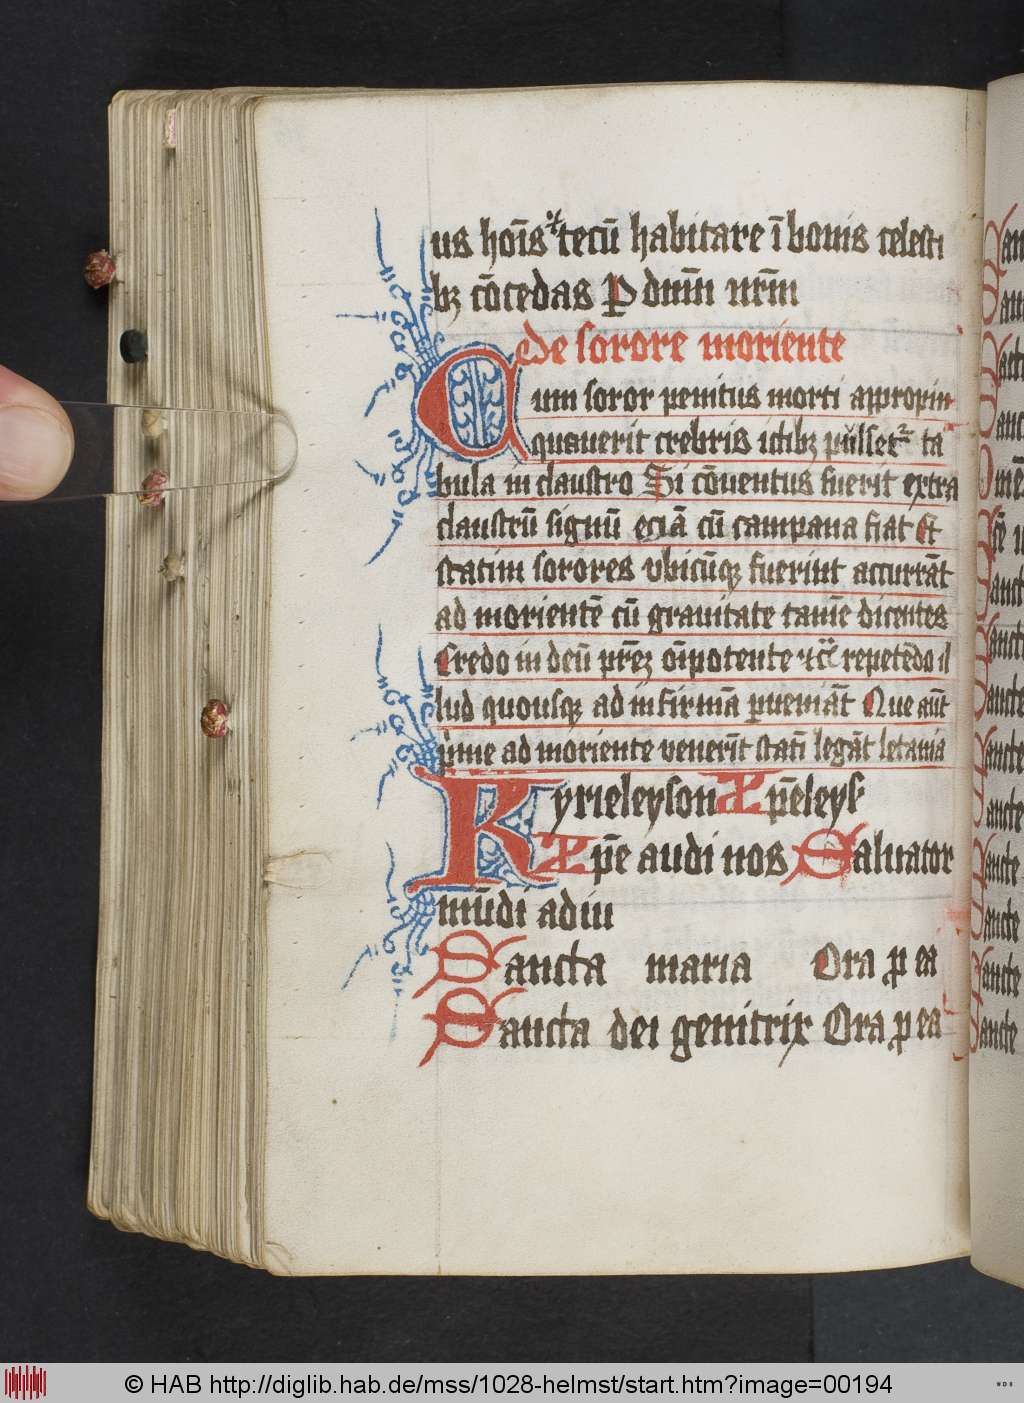 us hoı̄s ⁊ tecū habitare ī bonis celesti
bꝫ cōcedas P dnm̄ nr̄m
De sorore moriente
Cum soror penitus morti appropin
quauerit crebris ictibꝫ pulsetᷣ ta
bula in claustro Si cōuentus fuerit extra
claustrū signū eciā cū campana fiat Et
statim sorores vbicūqꝫ fuerint accurrāt
ad morientē cū grauitate tamē dicentes
Credo in deū pr̄eꝫ oīpotente ⁊cͣ repetēdo il
lud quousqꝫ ad infirmā pueniāt Que aūt
pͥme ad moriente venerīt statī legāt letania
Kyrieleyson Xp̄eleys
Xp̄e audi nos Saluator
mūdi adiu
Sancta maria Ora ꝓ ea
Sancta dei genitrix Ora ꝓ ea
© HAB http://diglib.hab.de/mss/1028-helmst/start.htm?image=00194